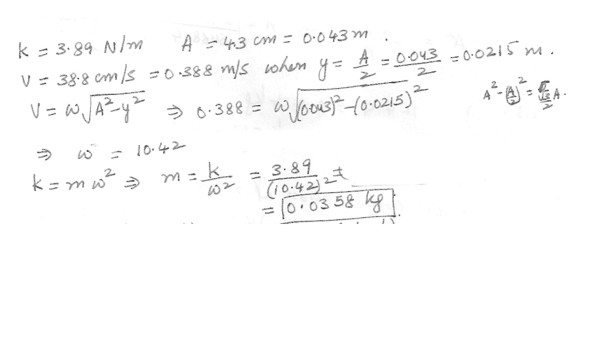 k = 3.89 N/m A = 4.3 cm = 0.043 m .
V = 38.8 cm/s = 0.388 m/s when y = A/2 = 0.043/2 = 0.0215 m .
V = ω√(A²-y²) ⇒ 0.388 = ω√((0.043)²-(0.0215)²) A²-(A/2)² = √3/2 A.
⇒ ω = 10.42
k = mω² ⇒ m = k/ω² = 3.89/(10.42)²
= 0.0358 kg